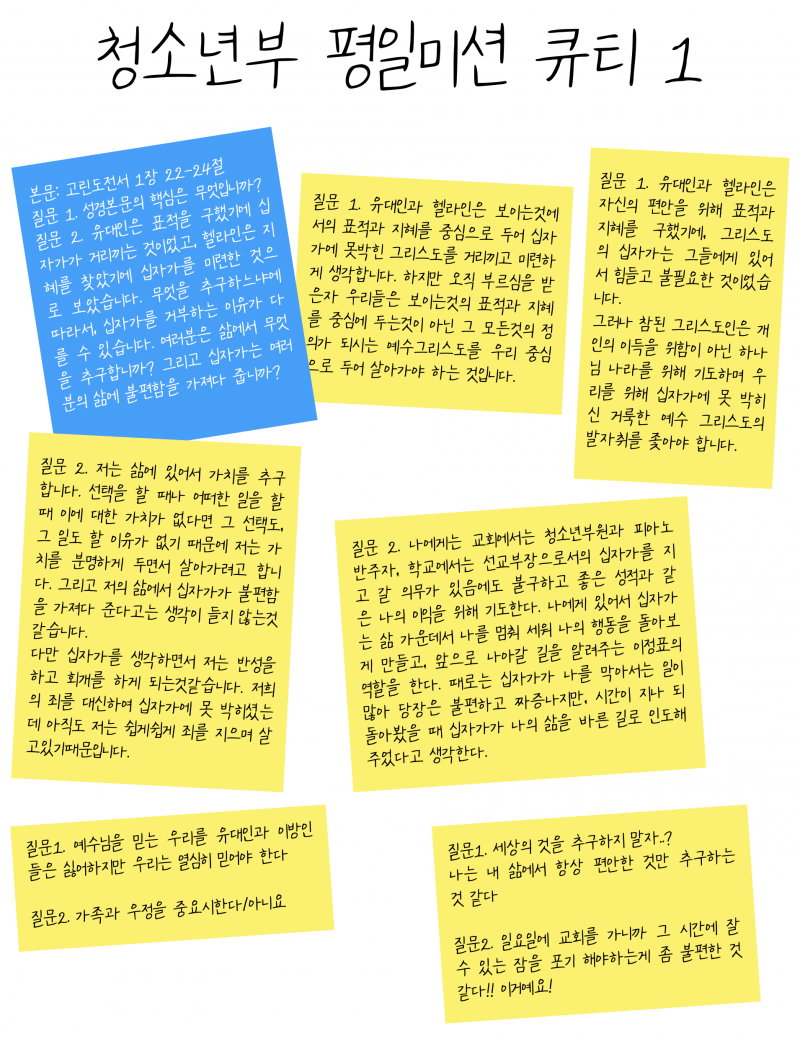 청소년부 평일미션 큐티 1
본문: 고린도전서 1장 22-24절
질문 1. 성경본문의 핵심은 무엇입니까?
질문 2. 유대인은 표적을 구했기에 십
자가가 거리끼는 것이었고, 헬라인은 지
혜를 찾았기에 십자가를 미련한 것으
로 보았습니다. 무엇을 추구하느냐에
따라서, 십자가를 거부하는 이유가 다
를 수 있습니다. 여러분은 삶에서 무엇
을 추구합니까? 그리고 십자가는 여러
분의 삶에 불편함을 가져다 줍니까?
질문 1. 유대인과 헬라인은 보이는것에
서의 표적과 지혜를 중심으로 두어 십자
가에 못박힌 그리스도를 거리끼고 미련하
게 생각합니다. 하지만 오직 부르심을 받
은자 우리들은 보이는것의 표적과 지혜
를 중심에 두는것이 아닌 그 모든것의 정
의가 되시는 예수그리스도를 우리 중심
으로 두어 살아가야 하는 것입니다.
질문 1. 유대인과 헬라인은
자신의 편안을 위해 표적과
지혜를 구했기에, 그리스도
의 십자가는 그들에게 있어
서 힘들고 불필요한 것이었습
니다.
그러나 참된 그리스도인은 개
인의 이득을 위함이 아닌 하나
님 나라를 위해 기도하며 우
리를 위해 십자가에 못 박히
신 거룩한 예수 그리스도의
발자취를 좇아야 합니다.
질문 2. 저는 삶에 있어서 가치를 추구
합니다. 선택을 할 때나 어떠한 일을 할
때 이에 대한 가치가 없다면 그 선택도,
그 일도 할 이유가 없기 때문에 저는 가
치를 분명하게 두면서 살아가려고 합니
다. 그리고 저의 삶에서 십자가가 불편함
을 가져다 준다고는 생각이 들지 않는것
같습니다.
다만 십자가를 생각하면서 저는 반성을
하고 회개를 하게 되는것같습니다. 저희
의 죄를 대신하여 십자가에 못 박히셨는
데 아직도 저는 쉽게쉽게 죄를 지으며 살
고있기때문입니다.
질문 2. 나에게는 교회에서는 청소년부원과 피아노
반주자, 학교에서는 선교부장으로서의 십자가를 지
고 갈 의무가 있음에도 불구하고 좋은 성적과 같
은 나의 이익을 위해 기도한다. 나에게 있어서 십자가
는 삶 가운데서 나를 멈춰 세워 나의 행동을 돌아보
게 만들고, 앞으로 나아갈 길을 알려주는 이정표의
역할을 한다. 때로는 십자가가 나를 막아서는 일이
많아 당장은 불편하고 짜증나지만, 시간이 지나 되
돌아봤을 때 십자가가 나의 삶을 바른 길로 인도해
주었다고 생각한다.
질문1. 예수님을 믿는 우리를 유대인과 이방인
들은 싫어하지만 우리는 열심히 믿어야 한다
질문2. 가족과 우정을 중요시한다/아니요
질문1. 세상의 것을 추구하지 말자..?
나는 내 삶에서 항상 편안한 것만 추구하는
것 같다
질문2. 일요일에 교회를 가니까 그 시간에 잘
수 있는 잠을 포기 해야하는게 좀 불편한 것
같다!! 이거예요!